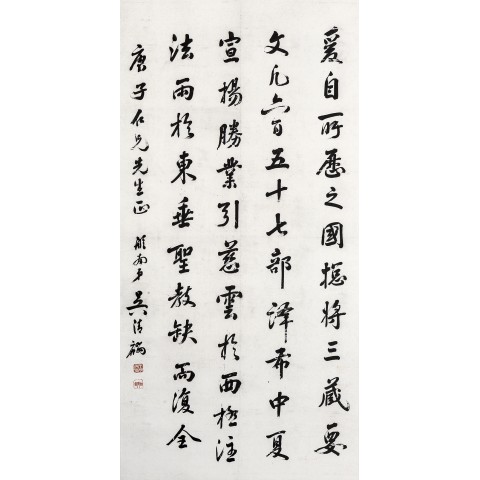 爰自所歷之國揔將三藏要
文凡六百五十七部譯布中夏
宣揚勝業引慈雲於西極注
法雨於東垂聖教缺而復全
庚子仁兄先生正
弟吳